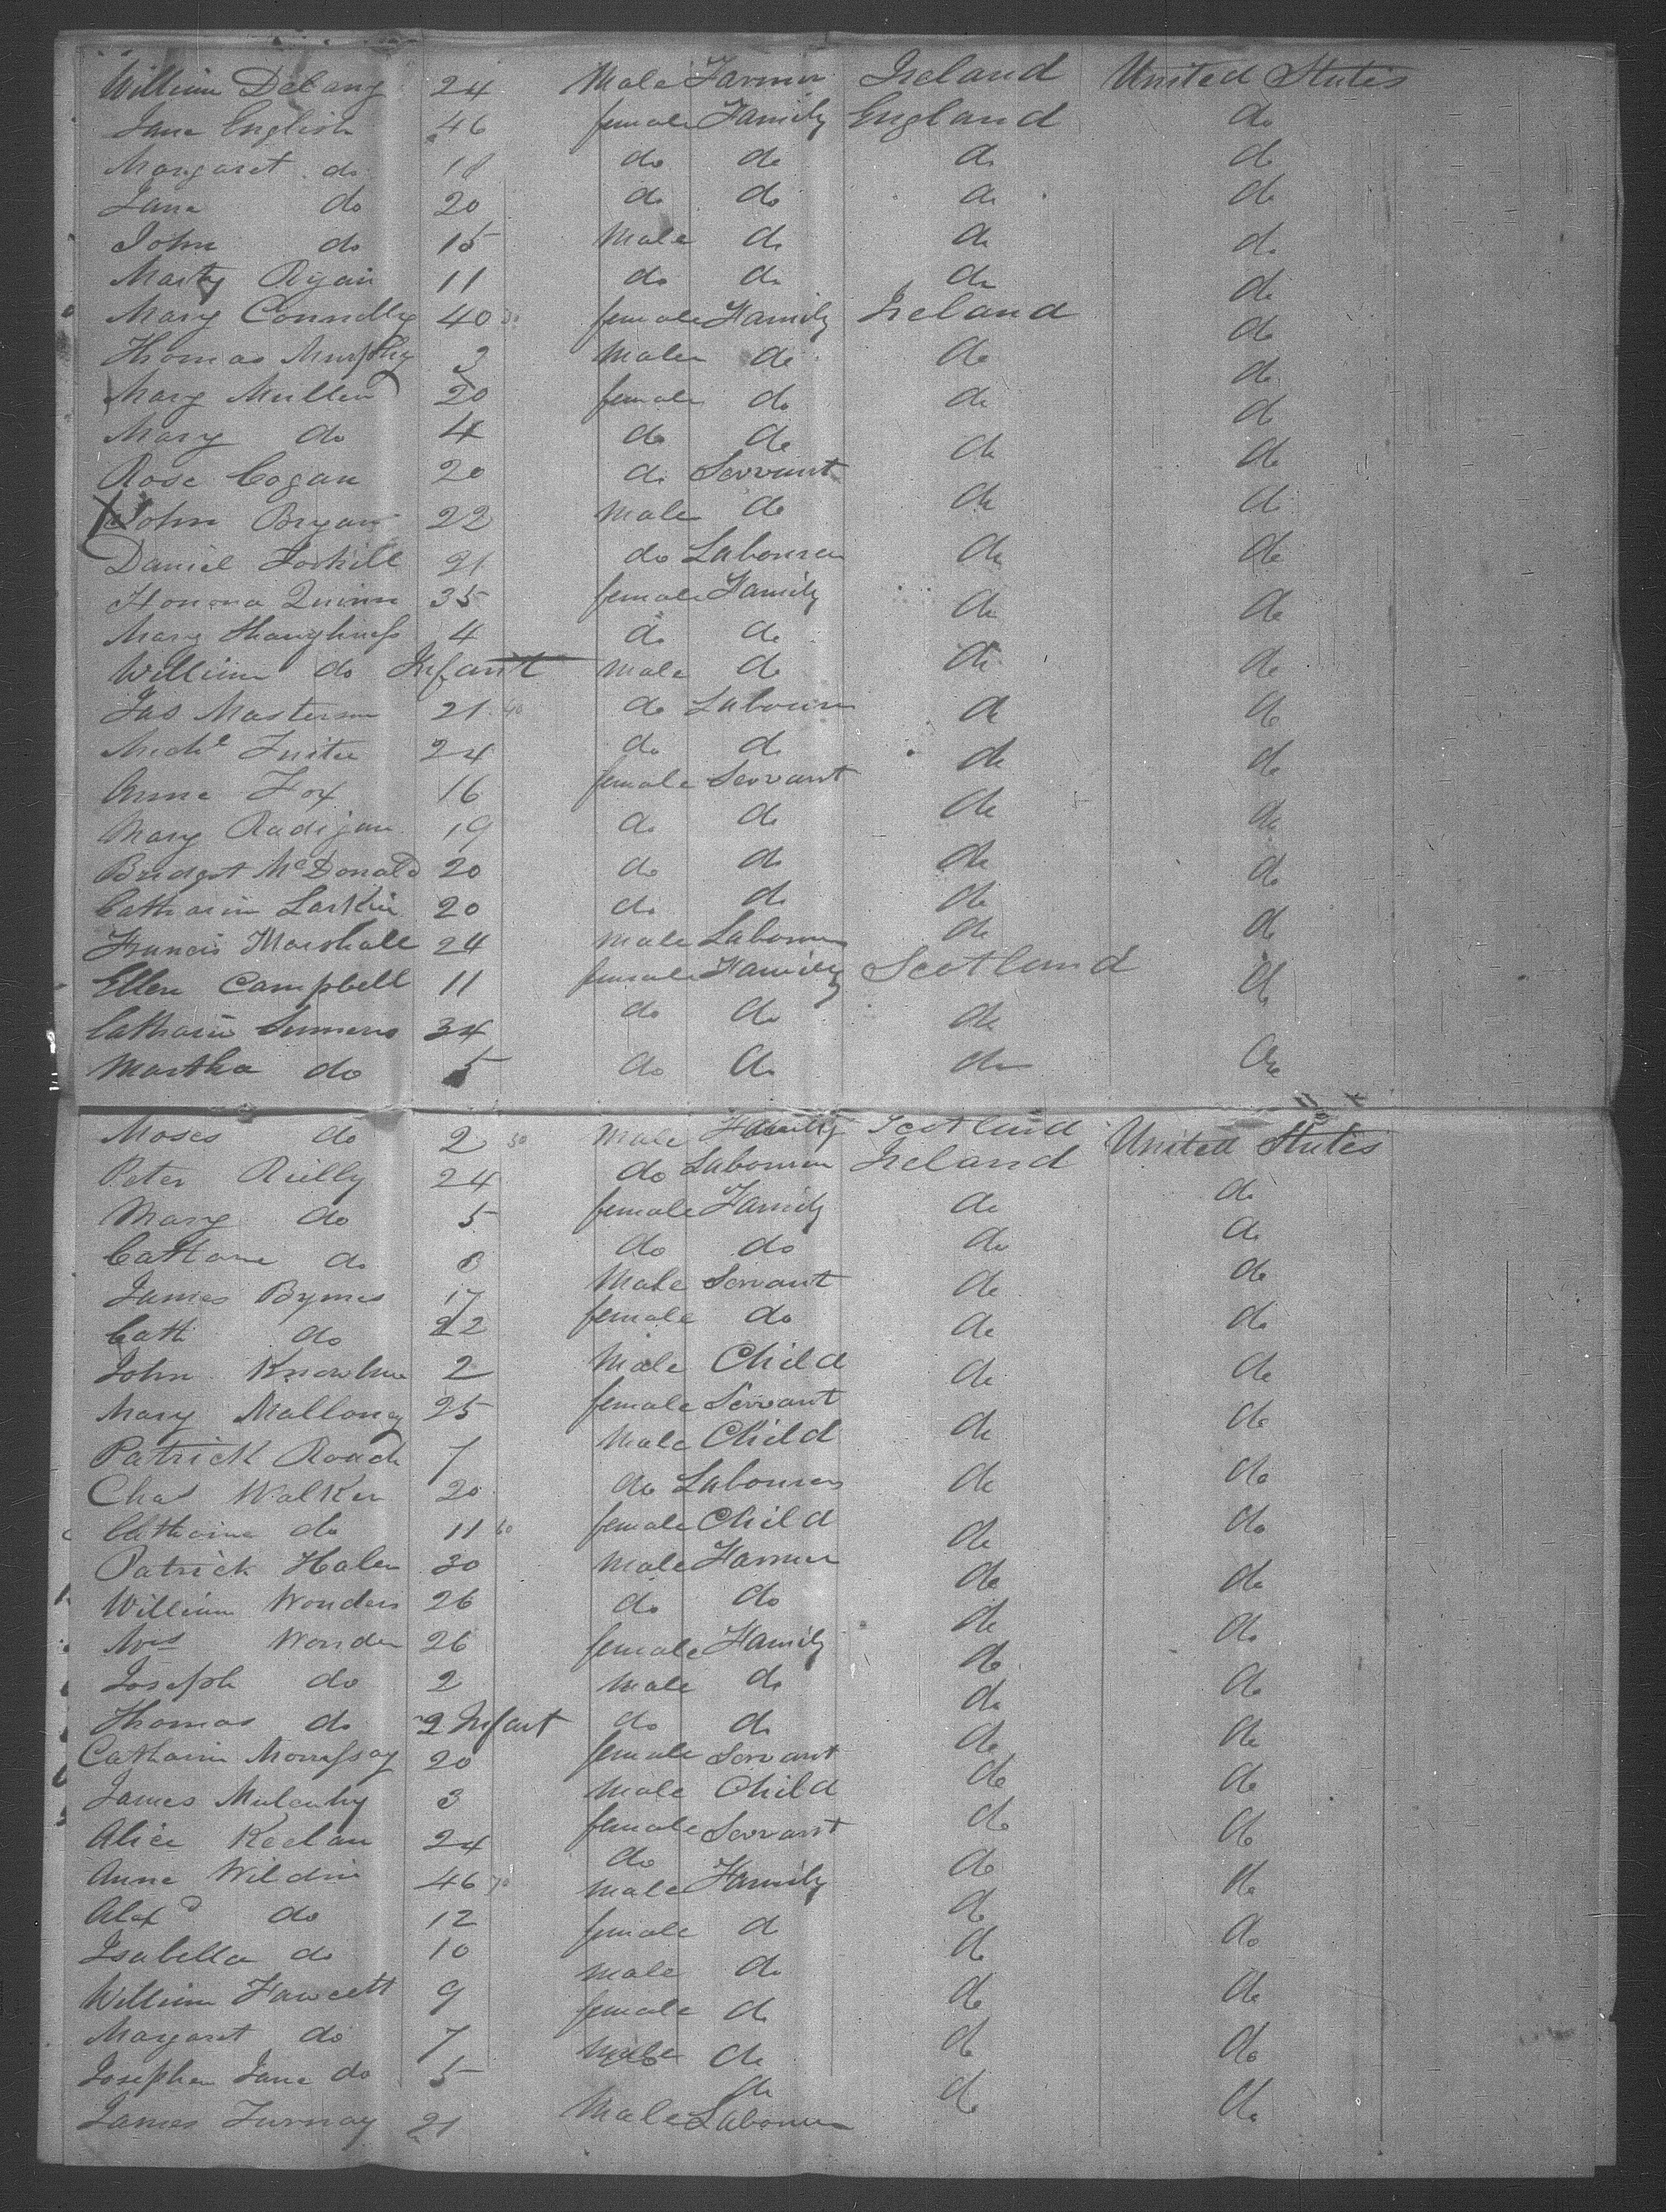 William Delany 24 Male Farmer Ireland United States
Jane English 46 female Family England do
Margaret do 18 do do do do
Jane do 20 do do do do
John do 15 Male do do do
Marty Ryan 11 do do do do
Mary Connolly 40 30 female Family Ireland do
Thomas Murphy 3 Male do do do
Mary Mullen 20 female do do do
Mary do 4 do do do do
Rose Cogan 20 do Servant do do
X John Bryan 22 male do do do
Daniel 21 do Labourer do do
Honora Quinn 35 female Family do do
Mary Shaughness 4 do do do do
William do Infant male do do do
Jas Masterson 21 40 do Labourer do do
Michl Fuite 24 do do do do
Anne Fox 16 female Servant do do
Mary Radigan 19 do do do do
Bridget McDonald 20 do do do do
Catharin Larkin 20 do do do do
Francis Marshall 24 male Labourer do do
Ellen Campbell 11 female Family Scotland do
Catharin Sumers 34 do do do
Martha do 5 do do do do
Moses do 2 50 Male Family Scotland United States
Peter Reilly 24 do Labourer Ireland
Mary do 5 female Family do do
Cathane do 8 do do do do
James Byrnes 17 Male Servant do do
Cath do 22 female do do do
John 2 Male Child do do
Mary Mallony 25 female Servant do do
Patrick Roach 7 Male Child do do
Chas Walker 20 do Labourer do do
Catharine do 11 60 female Child do do
Patrick Halen 30 Male Farmer do do
William Wonders 26 do do do do
Mrs Wonder 26 female Family do do
Joseph do 2 male do do do
Thomas do 2 Infant do do do do
Catharin Morrissay 20 female Servant do do
James Mulcahy 3 Male Child do do
Alice Keelan 24 female Servant do do
Anne Wildin 46 70 do Family do do
Alexd do 12 male do do
Isabella do 10 female do do
William Fawcett 9 male do do do
Margaret do 7 female do do do
Josephen Jane do 5 do do do
James Furnay 21 Male Labourer do do